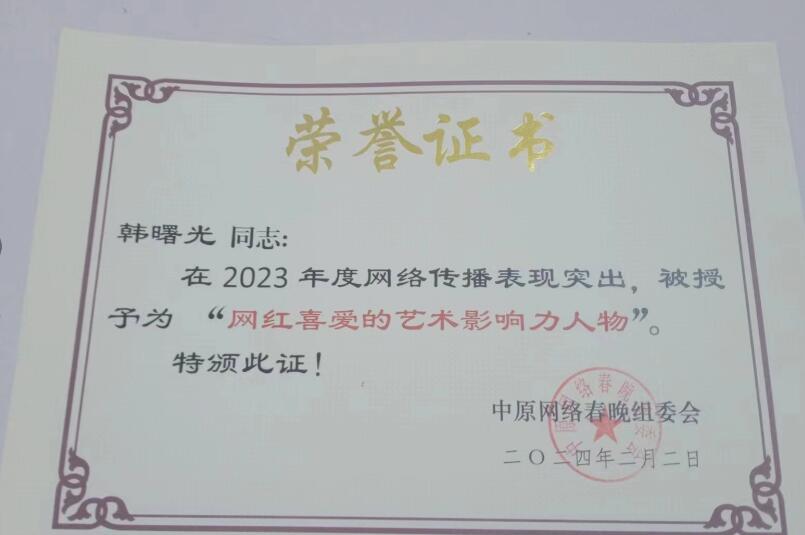 荣誉证书
韩曙光 同志:
在 2023 年度网络传播表现突出，被授
予为 “网红喜爱的艺术影响力人物”。
特颁此证！
中原网络春晚组委会
二〇二四年二月二日
中原网络春晚组委会